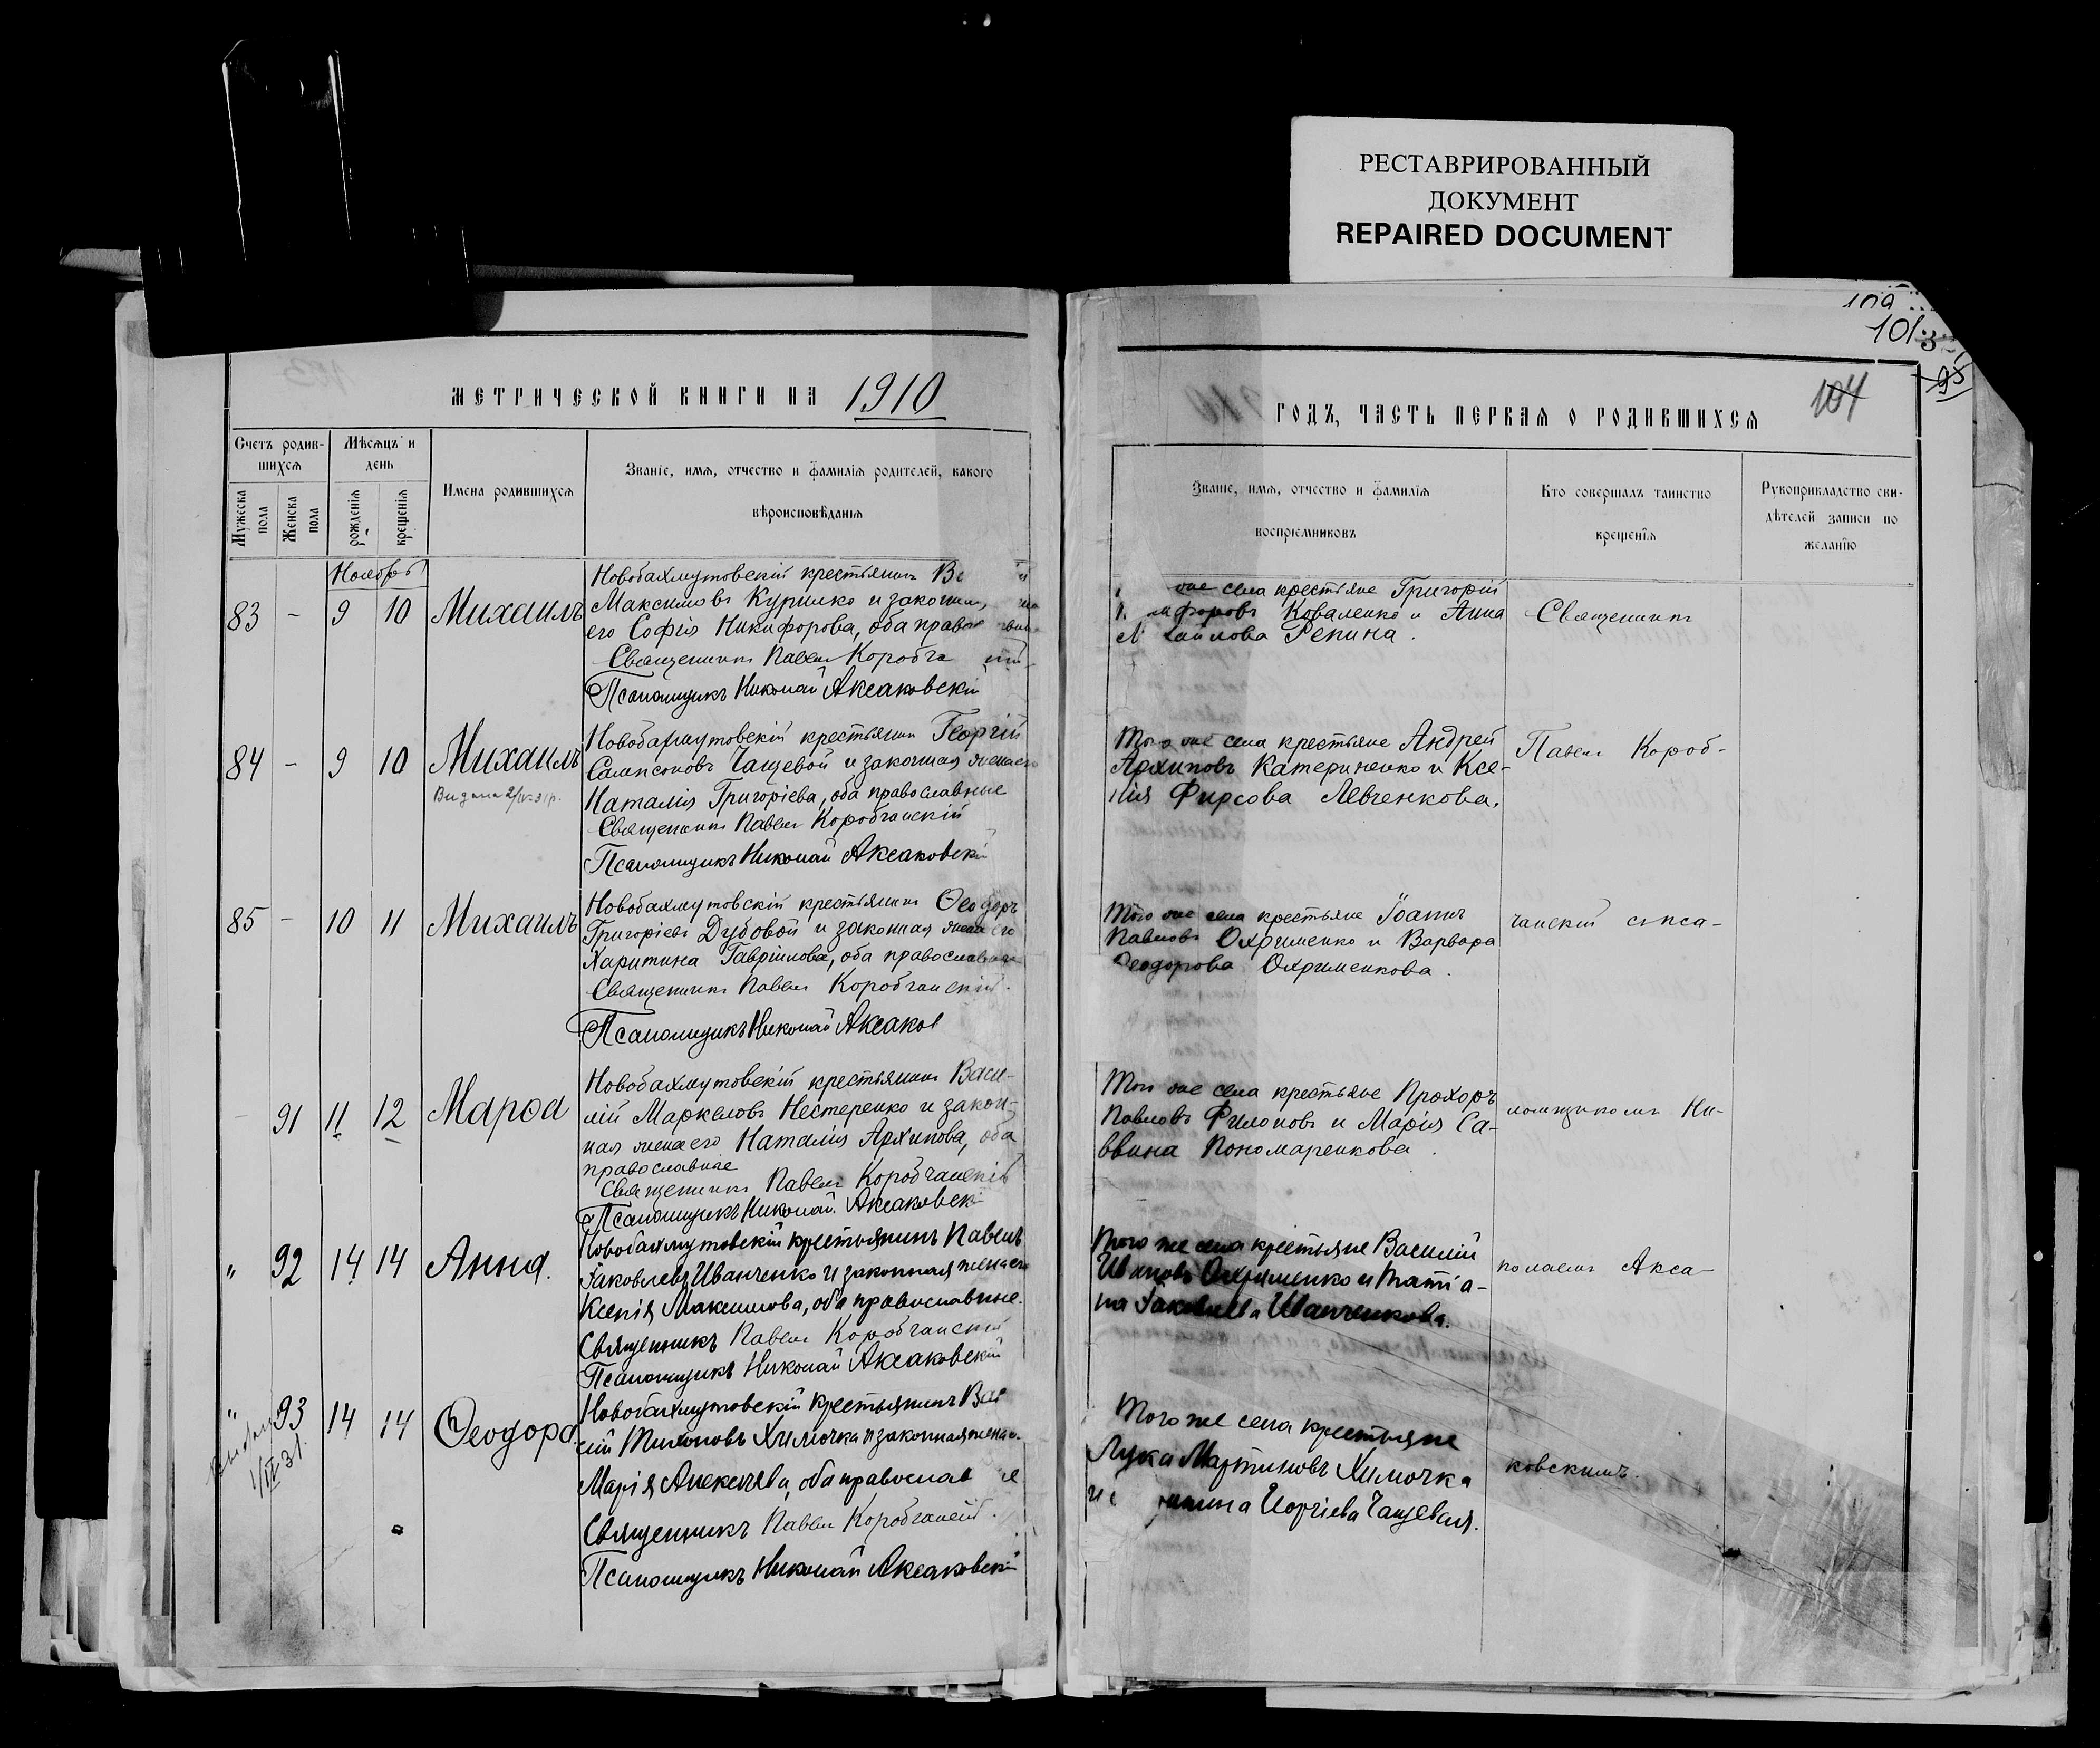 РЕСТАВРИРОВАННЫЙ
ДОКУМЕНТ
REPAIRED DOCUMENT
101
104
95
МЕТРИЧЕСКОЙ КНИГИ НА 1910
ГОДЪ, ЧАСТЬ ПЕРВАЯ О РОДИВШИХСЯ
Счетъ родив-
шихся
Мужеска пола
Женска пола
Мѣсяцъ и
день
рожденія
крещенія
Имена родившихся
Званіе, имя, отчество и фамилія родителей, какого
вѣроисповѣданія
Званіе, имя, отчество и фамилія
воспріемниковъ
Кто совершалъ таинство
крещенія
Рукоприкладство сви-
дѣтелей записи по
желанію
Ноябрь
83 - 9 10 Михаилъ
Новобахмутовскій крестьянинъ
Максимовъ Курилко и законная
его Софія Никифорова, оба
Священникъ Павелъ
Псаломщикъ Николай Аксаковскій
же села крестьяне Григорій
Коваленко и Анна
Репина.
Священникъ
84 - 9 10 Михаилъ
Видана 2/IV-31 р.
Новобахмутовскій крестьянинъ Георгій
Сампсоновъ Чащевой и законная жена его
Наталія Григоріева, оба православные
Священникъ Павелъ Коробчанскій
Псаломщикъ Николай Аксаковскій
Того же села крестьяне Андрей
Архиповъ Катериненко и Ксе-
нія Фирсова Левченкова.
Павелъ Короб-
85 - 10 11 Михаилъ
Новобахмутовскій крестьянинъ Ѳеодоръ
Григоріевъ Дубовой и законная жена его
Харитина Гавріилова, оба православные
Священникъ Павелъ Коробчанскій.
Псаломщикъ Николай
Того же села крестьяне Іоаннъ
Павловъ Охрименко и Варвара
Ѳеодорова Охрименкова.
чанскій съ пса-
- 91 11 12 Марѳа
Новобахмутовскій крестьянинъ Васи-
лій Маркеловъ Нестеренко и закон-
ная жена его Наталія Архипова, оба
православные
Священникъ Павелъ Коробчанскій
Псаломщикъ Николай Аксаковскій
Того же села крестьяне Прохоръ
Павловъ Филоновъ и Марія Са-
ввина Пономаренкова.
ломщикомъ Ни-
" 92 14 14 Анна.
Новобахмутовскій крестьянинъ Павелъ
Іаковлевъ Иванченко и законная жена его
Ксенія Максимова, оба православные.
Священникъ Павелъ Коробчанскій
Псаломщикъ Николай Аксаковскій
Того же села крестьяне Василій
Ивановъ Охрименко и Татіа-
на Іаковлева Иванченкова.
колаемъ Акса-
" 93 14 14 Ѳеодора.
1/IV 31.
Новобахмутовскій крестьянинъ
Тихоновъ Химочка и законная жена
Марія Алексѣева, оба
Священникъ Павелъ Коробчанскій.
Псаломщикъ Николай Аксаковскій
Того же села крестьяне
Лука Мартиновъ Химочка
Георгіева Чащевая.
ковскимъ.